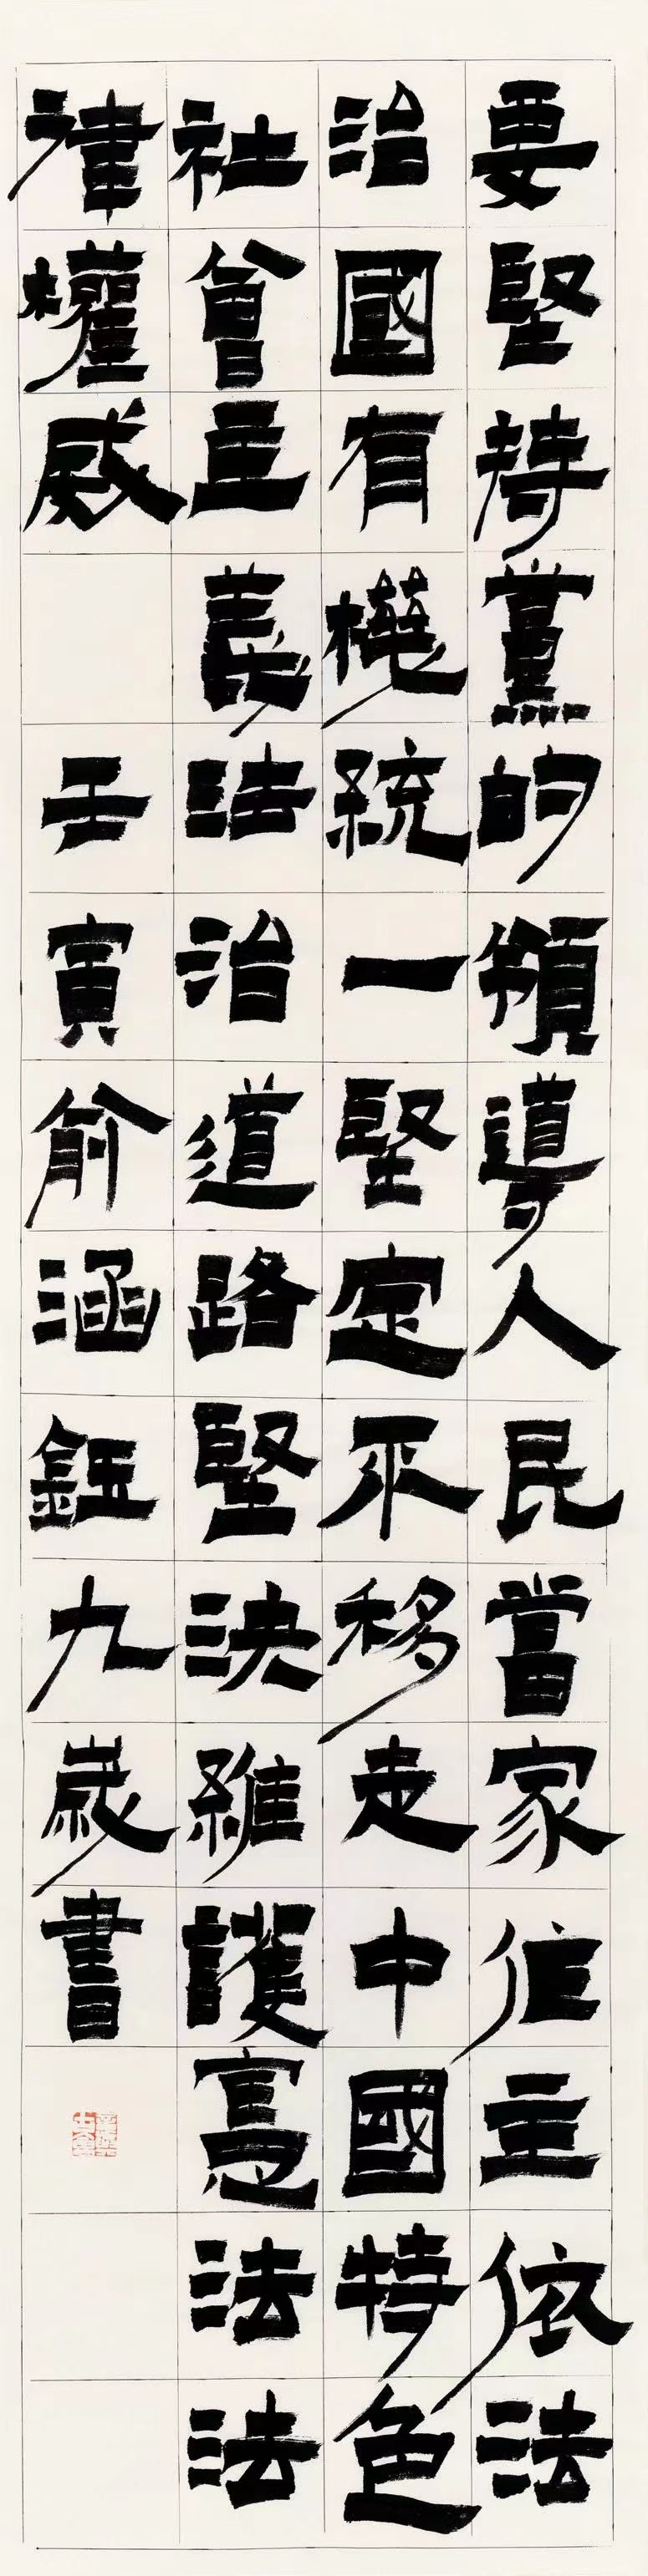 要堅持黨的領導人民當家作主依法
治國有機統一堅定不移走中國特色
社會主義法治道路堅決維護憲法法
律權威 壬寅俞涵鈺九歲書